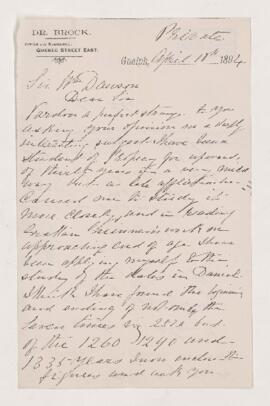 DR. BROCK.
OFFICE AND RESIDENCE:
QUEBEC STREET EAST.
Private
Guelph, April 18th 1894
Sir Wm Dawson
Dear Sir
Pardon a perfect stranger to you
asking your opinion on a deeply
interesting subject I have been a
student of Prophecy for upwards
of thirty years in a very mild
way but as late affliction
caused me to study it
more closely, and in reading
Grattan Guinness work on
approaching end of age I have
been applying myself to the
study of the dates in Daniel
I think I have found the beginning
and ending of not only the
seven times or 2520 but
of the 1260 1290 and
1335 years I now enclose the
figures and ask you